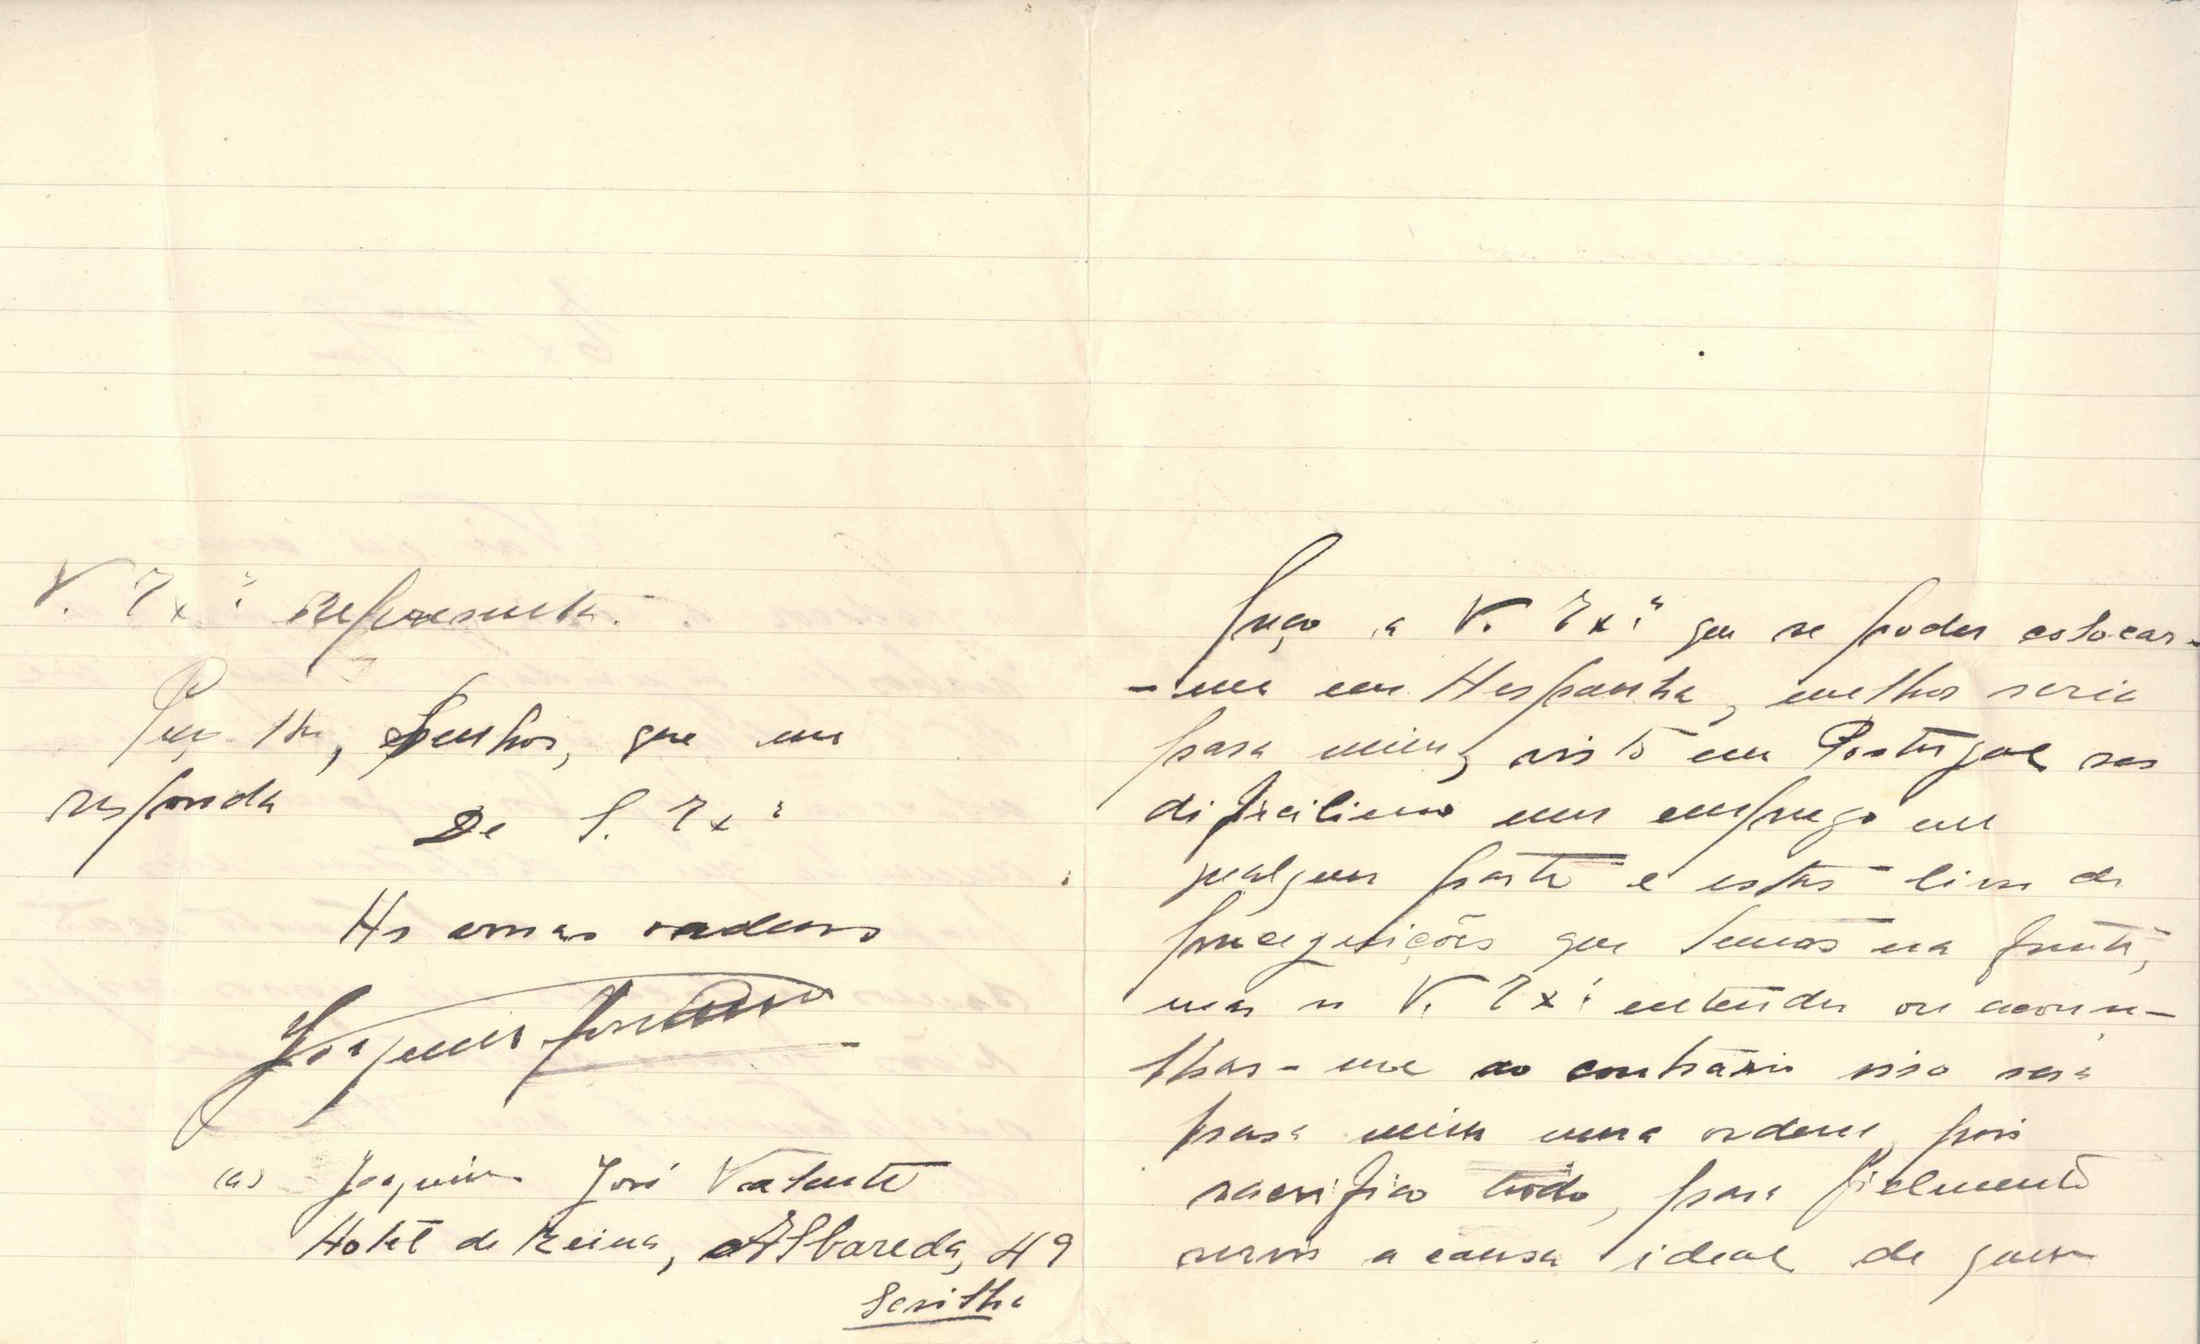 peço a V. Ex.ª que se poder colocar-
-me em Hespanha, melhor seria
para mim, visto em Portugal ser
dificilimo um emprego em
qualquer parte e estar livre de
preceguições que temos na frente,
mas se V. Ex.ª entender ou aconse-
lhar-me ao contrário isso será
para mim uma ordem, pois
sacrifico tudo, para fielmente
servir a causa ideal de quem
V. Ex.ª representa.
Peço-lhe, Senhor, que me
responda
De S. Ex.ª
As ordens
Joaquim José Valente
(a) Joaquim José Valente
Hotel de Reina, Albareda, 49
Sevilha